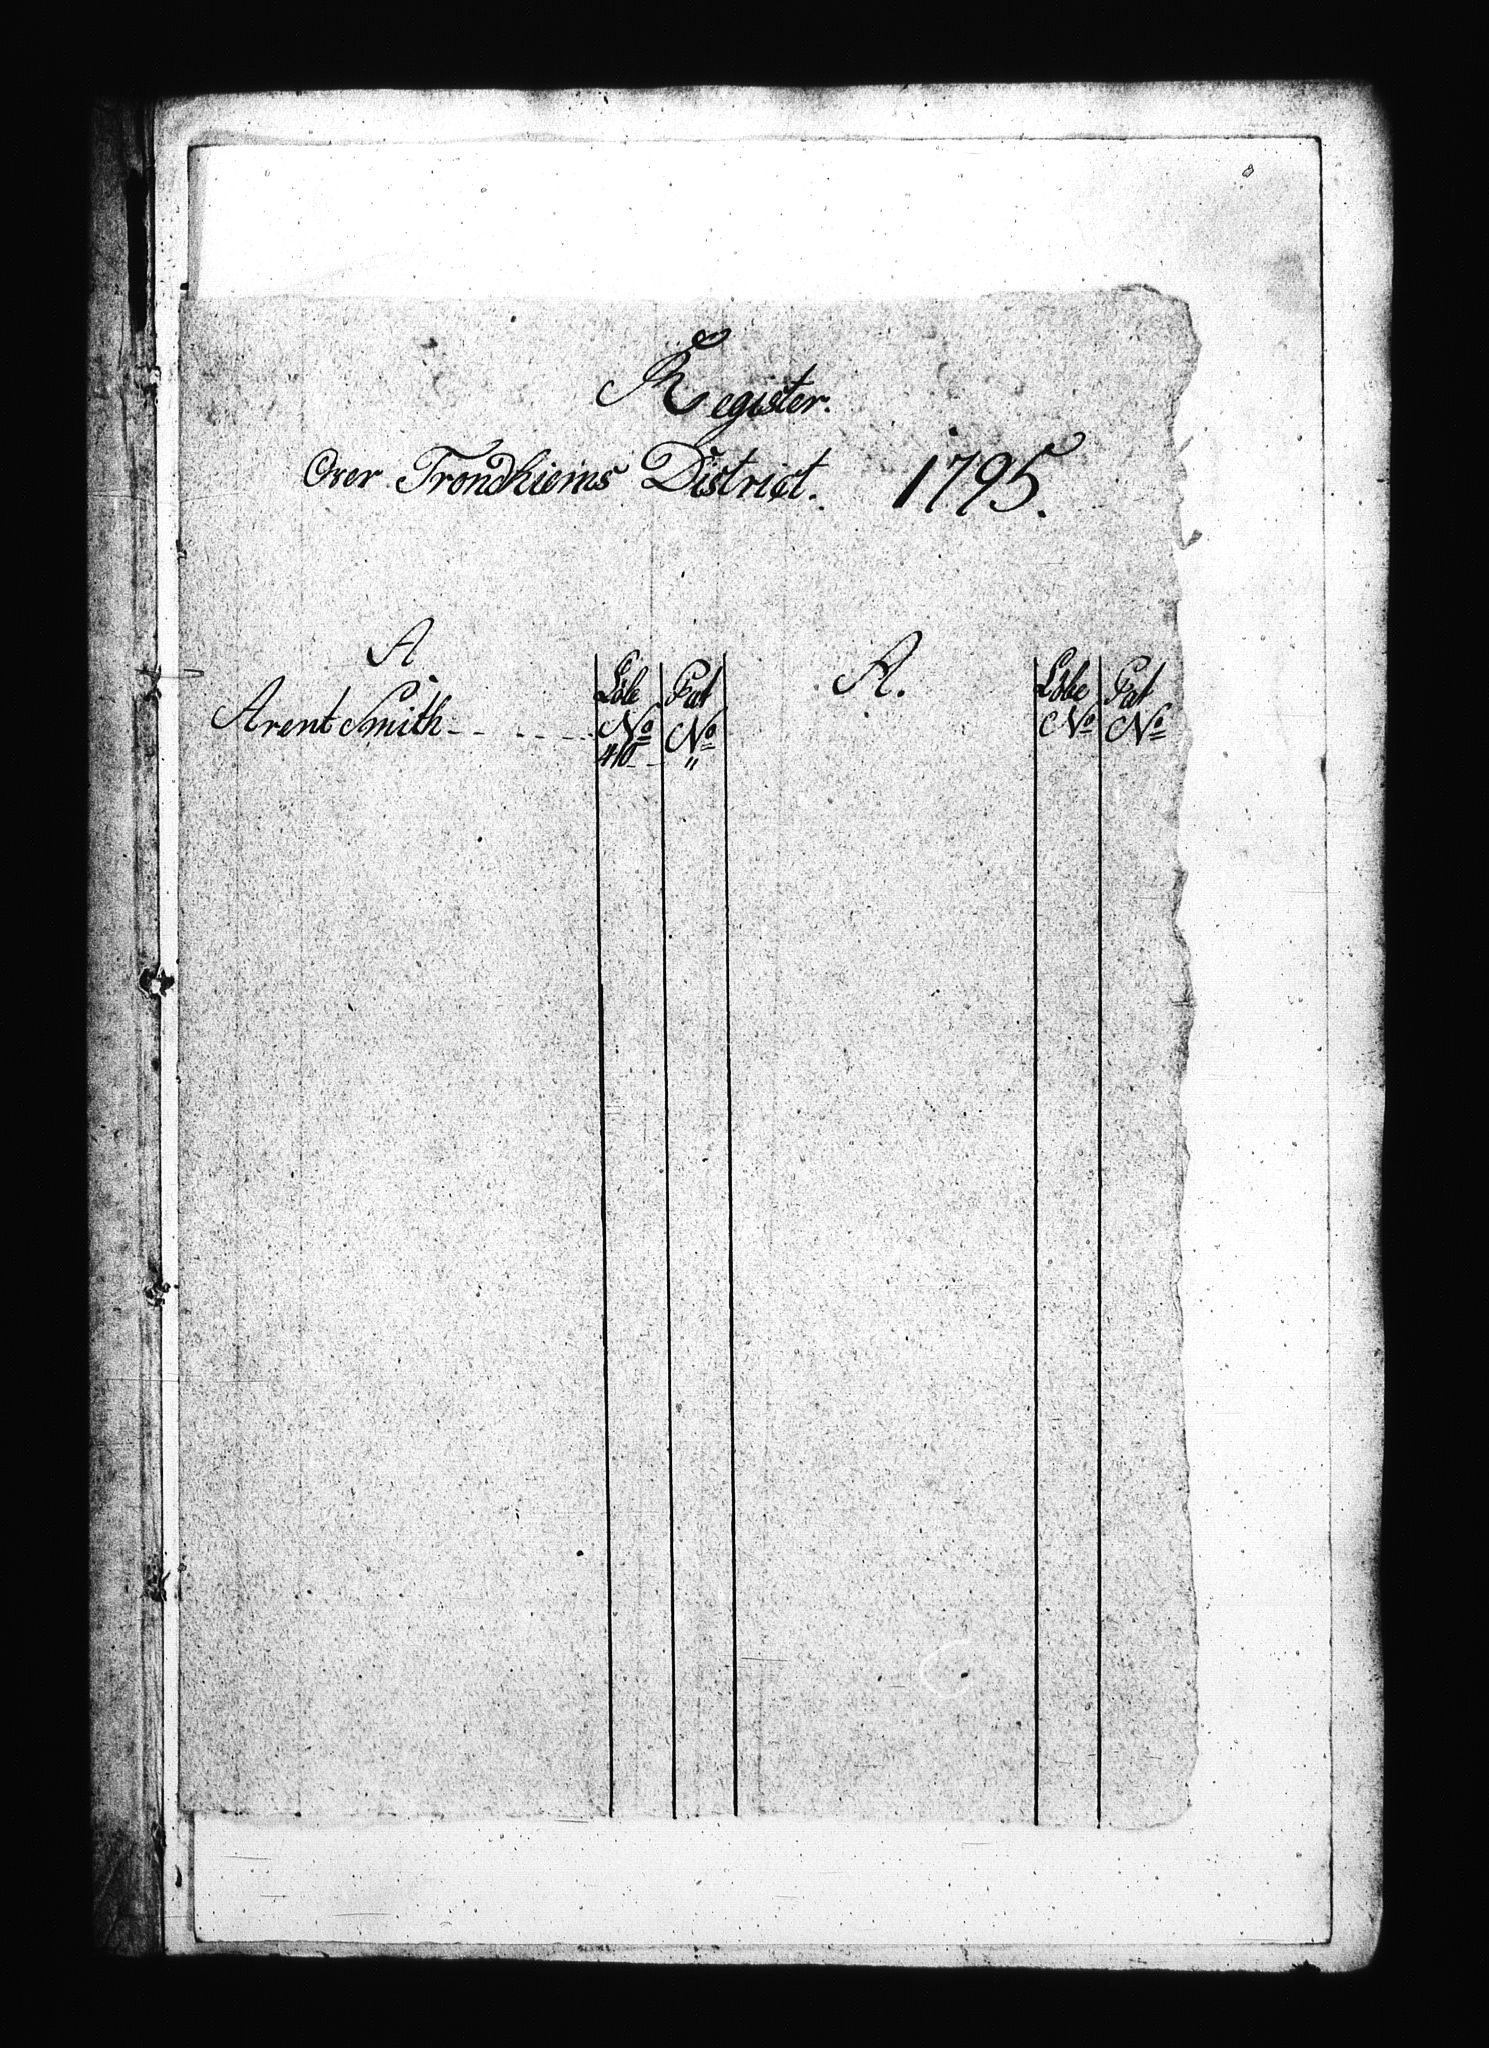 Register.
Over Trondhiems District. 1795.
A
Løbe No
Pat No
Arent Smith
410 "
A.
Løbe No
Pat No